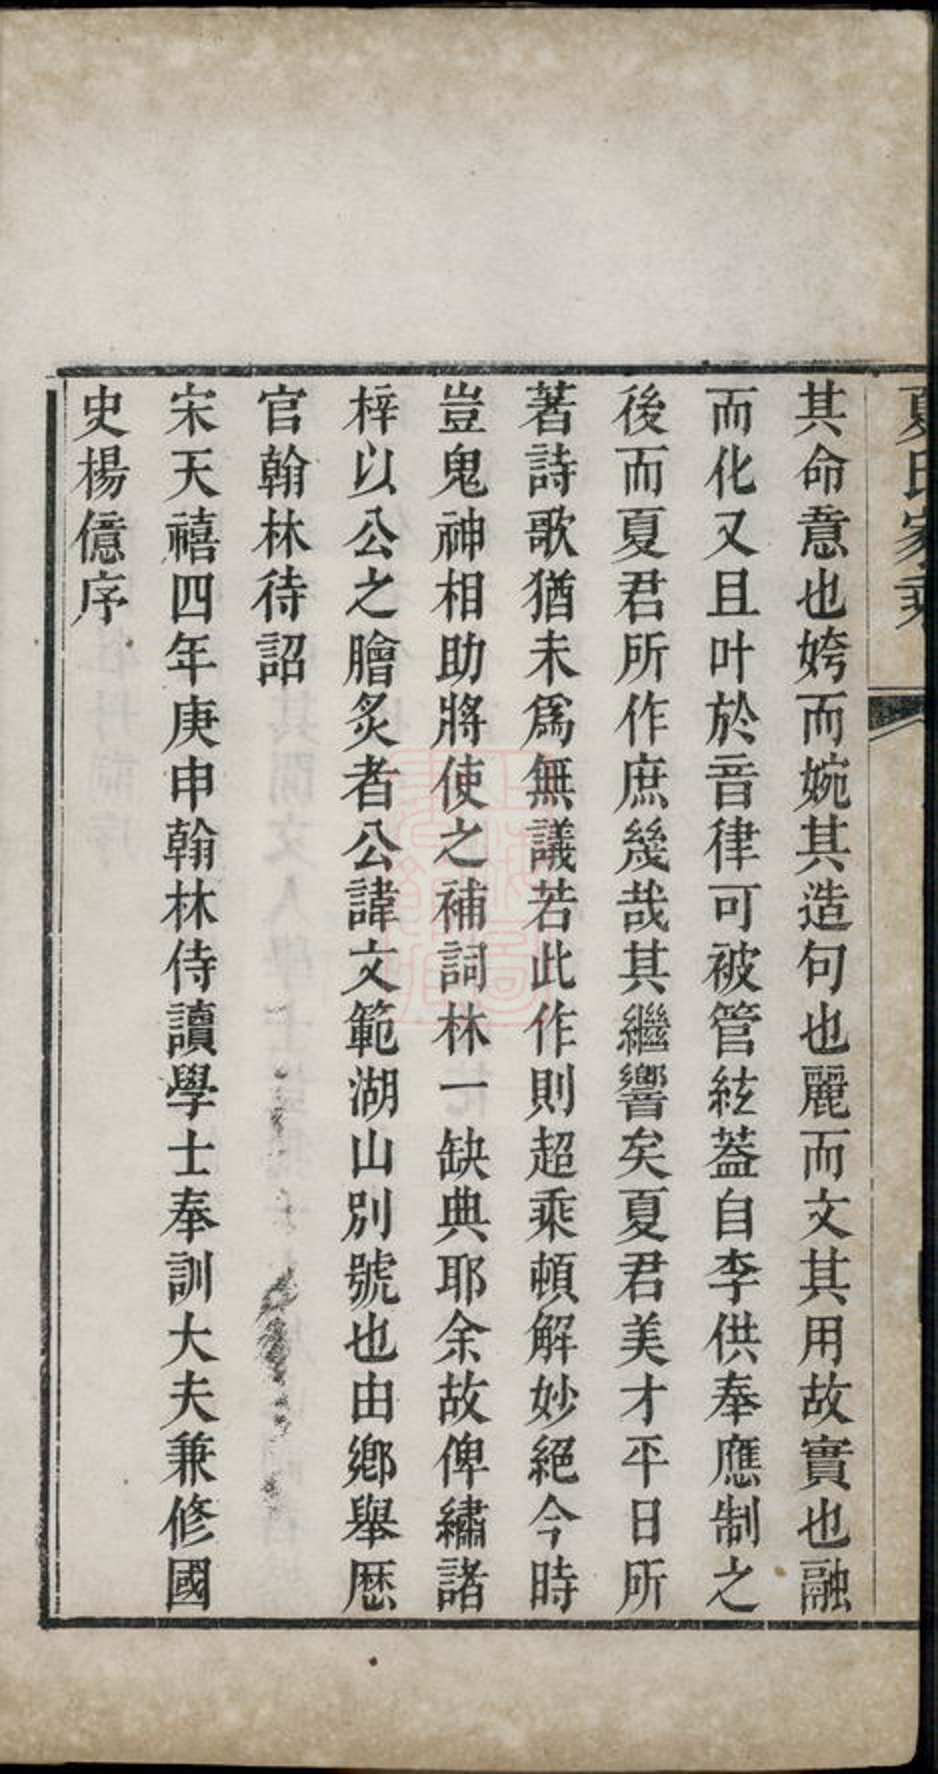 夏氏家乘
其命意也姱而婉其造句也麗而文其用故實也融
而化又且叶於音律可被管絃葢自李供奉應制之
後而夏君所作庶幾哉其繼響矣夏君美才平日所
著詩歌猶未爲無議若此作則超乘頓解妙絕今時
豈鬼神相助將使之補詞林一缺典耶余故俾繡諸
梓以公之膾炙者公諱文範湖山別號也由鄉舉歷
官翰林待詔
宋天禧四年庚申翰林侍讀學士奉訓大夫兼修國
史楊億序